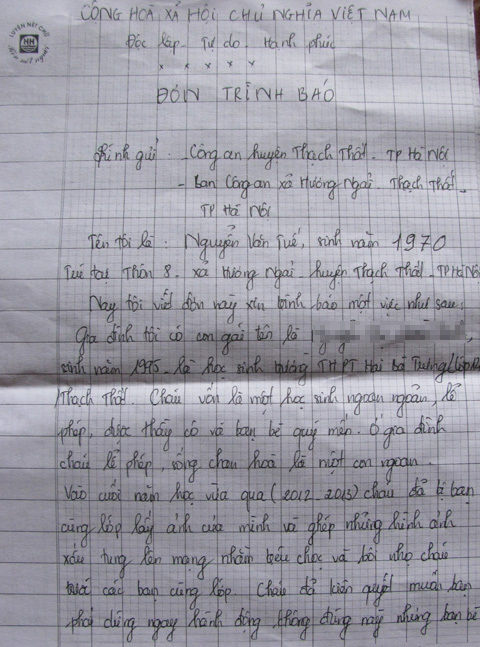 CỘNG HOÀ XÃ HỘI CHỦ NGHĨA VIỆT NAM
Độc lập - Tự do - Hạnh phúc
x x x x x
ĐƠN TRÌNH BÁO
Kính gửi : - Công an huyện Thạch Thất - TP Hà Nội
- Ban Công an xã Hương Ngải - Thạch Thất -
TP Hà Nội
Tên tôi là : Nguyễn Văn Tuế, sinh năm 1970
Trú tại Thôn 8 - xã Hương Ngải - huyện Thạch Thất - TP Hà Nội
Nay tôi viết đơn này xin trình báo một việc như sau:
Gia đình tôi có con gái tên là
sinh năm 1995 - là học sinh trường THPT Hai Bà Trưng
Thạch Thất. Cháu vốn là một học sinh ngoan ngoãn, lễ
phép, được thầy cô và bạn bè quý mến. Ở gia đình
cháu lễ phép, sống chan hoà là một con ngoan.
Vào cuối năm học vừa qua (2012 - 2013) cháu đã bị bạn
cùng lớp lấy ảnh của mình và ghép những hình ảnh
xấu tung lên mạng nhằm trêu chọc và bôi nhọ cháu
trước các bạn cùng lớp. Cháu đã kiên quyết muốn bạn
phải dừng ngay hành động không đúng này nhưng bạn bè